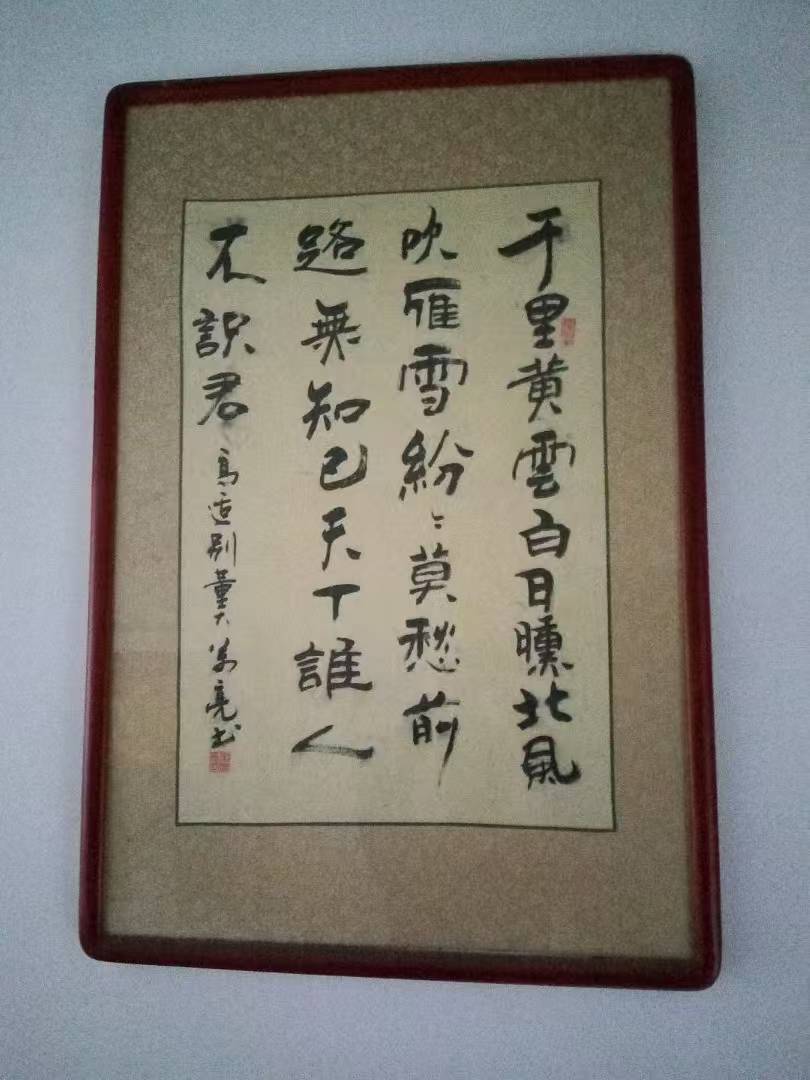 千里黄雲白日曛北風
吹雁雪紛〻莫愁前
路無知己天下誰人
不識君
高适别董大 亮书